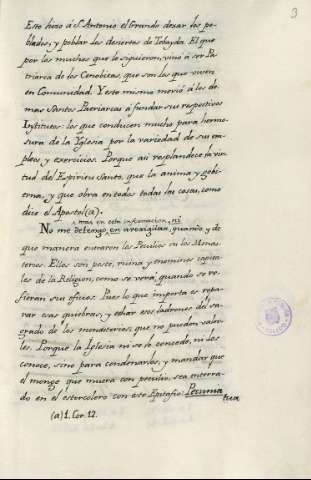 3
Esto hizo á S. Antonio el Grande dexar los po-
blados, y poblar los desiertos de Tebayda. El que
por los muchos que le siguieron, vino á ser Pa-
triarca de los Cenobitas, que son los que viven
en Comunidad. Y esto mismo movió á los de-
mas Santos Patriarcas á fundar sus respectivos
Institutos: los que conducen mucho para hermo-
sura de la Yglesia por la variedad de sus em-
pleos y exercicios. Porque asi resplandece la vir-
tud del Espiritu Santo, que la anima y gobi-
erna, y que obra en todos todas las cosas, como
dice el Apostol (a).
mas en esta informacion, ni
No me detengo, en averiguar, quando y de
que manera entraron los Peculios en los Monas-
terios. Ellos son peste, ruina y enemigos capita-
les de la Religion, como se verá, quando se re-
fieran sus oficios. Pues lo que importa es repa-
rar esas quiebras, y echar esos ladrones del sa-
grado de los monasterios, que no pueden valer-
les. Porque la Iglesia ni se lo concede, ni los
conoce, sino para condenarlos, y mandar que
el monge que muera con peculio, sea enterra-
do en el estercolero con este Epitafio: Pecunia
tua
(a) 1. Cor. 12.